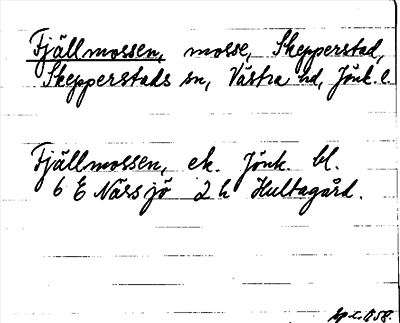 Fjällmossen, mosse, Skepperstad,
Skepperstads sn, Västra hd, Jönk. l.
Fjällmossen, ek. Jönk. bl.
6 E Nässjö 2 h Hultagård.